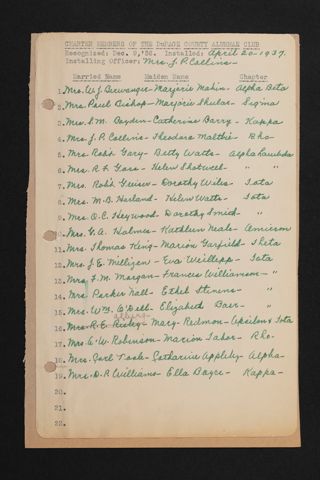 CHARTER MEMBERS OF THE DuPAGE COUNTY ALUMNAE CLUB
Recognized: Dec. 9, '36. Installed: April 20-1937.
Installing Officer: Mrs. J. P. Collins-
Married Name Maiden Name Chapter
1. Mrs. W. J. - Marjorie Makin - Alpha Beta
2. Mrs. Paul Bishop - Marjorie Shular - Sigma
3. Mrs. S.M. Boyden - Catherine Barry - Kappa
4. Mrs. J. P. Collins - Theodora Maltbie - Rho
5. Mrs. Rob't Gary - Betty Watts - Alpha Lambda
6. Mrs. R. F. - Helen Shotwell - " "
7. Mrs. Rob't - Dorothy Wiles - Iota
8. Mrs. M. B. Herland - Helen Watts - Iota
9. Mrs. O. C. Heywood - Dorothy Smid - "
10. Mrs. G. A. Holmes - Kathleen - Omicron
11. Mrs. Thomas King - Marion Garfield - Theta
12. Mrs. J. E. Milligen - Eva - Iota
13. Mrs. F. M. Morgan - Frances Williamson - "
14. Mrs. Parker Nall - Ethel Stevens - "
15. Mrs. Wm. O'Dell - Elizabeth Baer - "
16. Mrs. R. E. - Mary Redmon - Upsilon & Iota
17. Mrs. C. W. Robinson - Marion Tabor - Rho -
18. Mrs. Earl - Catharine Appleby - Alpha -
19. Mrs. D. P. Williams - Ella - Kappa -
20.
21.
22.